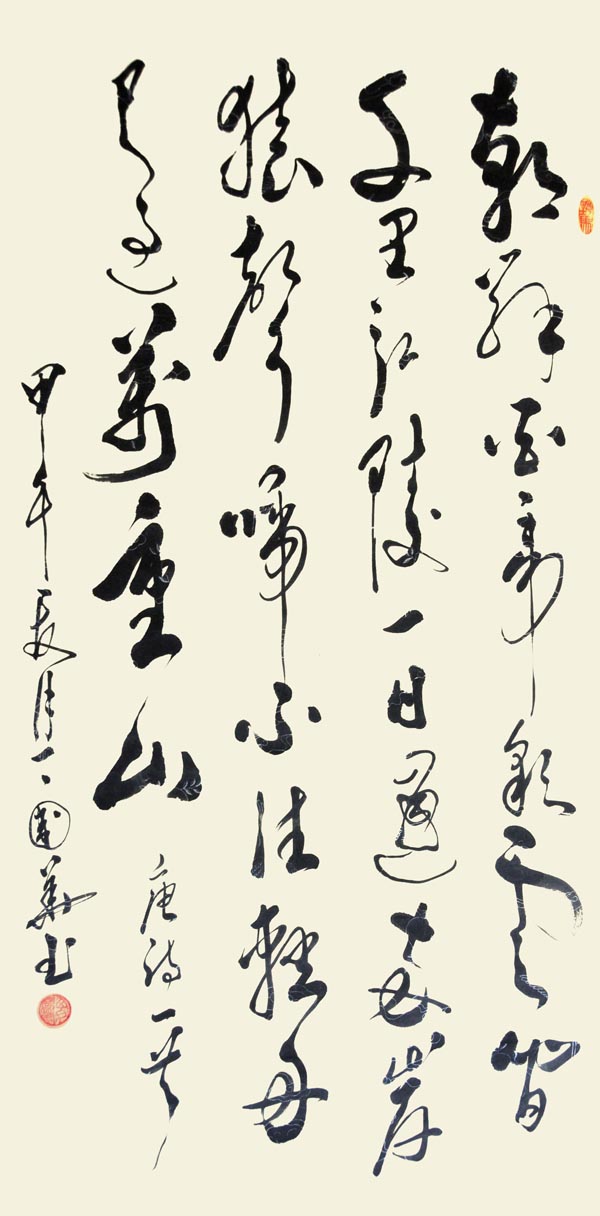 朝辭白帝彩雲間
千里江陵一日還兩岸
猿聲啼不住輕舟
已過萬重山 唐詩一首
甲午月國華書